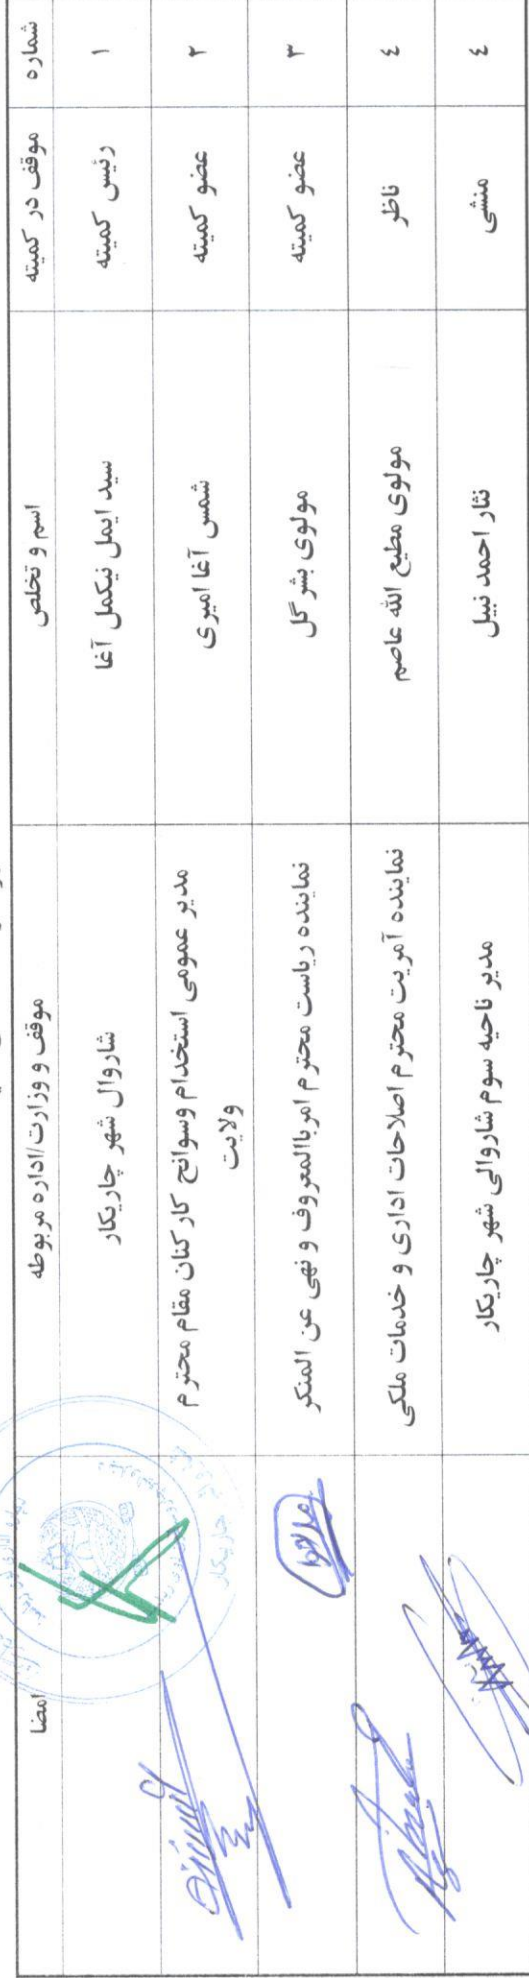 شماره موقف در کمیته اسم و تخلص موقف و وزارت/اداره مربوطه امضا
۱ رئیس کمیته سید ایمل نیکمل آغا شاروال شهر چاریکار
۲ عضو کمیته شمس آغا امیری مدیر عمومی استخدام وسوانح کارکنان مقام محترم
ولایت
۳ عضو کمیته مولوی بشر گل نماینده ریاست محترم امرباالمعروف و نهی عن المنکر
٤ ناظر مولوی مطیع الله عاصم نماینده آمریت محترم اصلاحات اداری و خدمات ملکی
٤ منشی نثار احمد نبیل مدیر ناحیه سوم شاروالی شهر چاریکار
چاریکار